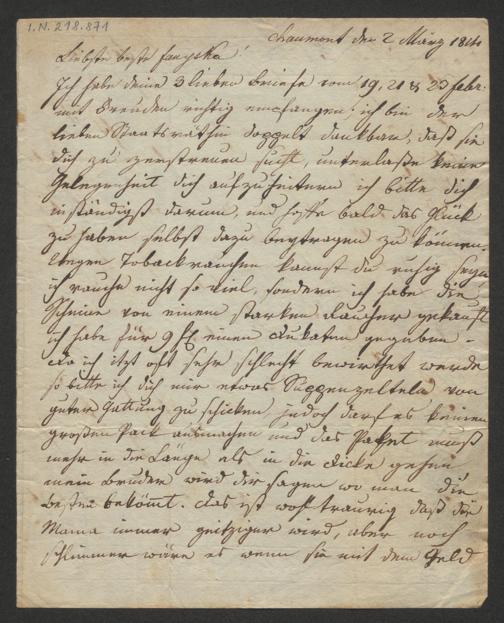 I.N. 218.871
Chaumont den 2 März 1814
Liebste beste
Ich habe deine 3 lieben Briefe vom 19, 21 & 23 Febr:
mit Freuden richtig empfangen, ich bin der
lieben Staatsräthin doppelt dankbar, daß sie
dich zu zerstreuen sucht, unterlaße keine
Gelegenheit dich aufzuheitern ich bitte dich
inständigst darum, und hoffe bald das Glück
zu haben selbst dazu beytragen zu können.
Wegen Toback rauchen kannst du ruhig seyn
ich rauche nicht so viel, sondern ich habe die
von einem starken Raucher gekauft
ich habe für 9 einen Dukaten gegeben –
da ich itzt oft sehr schlecht bewirthet werde
so bitte ich dich mir etwas Suppenzelteln von
guter Gattung zu schicken, jedoch darf es keinen
großen Pack ausmachen und das Paket muß
mehr in die Länge als in die Dicke gehen
mein Bruder wird dir sagen wo man die
besten bekömt. Das ist wohl traurig daß die
Mama immer geitziger wird, aber noch
schlimmer wäre es wenn sie mit dem Geld